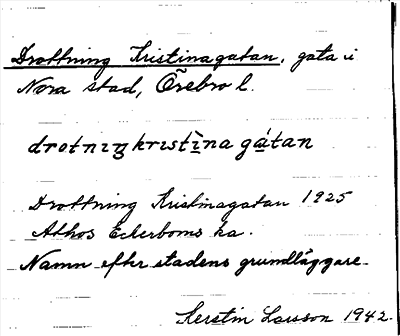 Drottning Kristinagatan, gata i
Nora stad, Örebro l.
drotnıŋkrıstìna gátan
Drottning Kristinagatan 1925
Athos Eckerboms ka.
Namn efter stadens grundläggare.
Kerstin Larsson 1942.